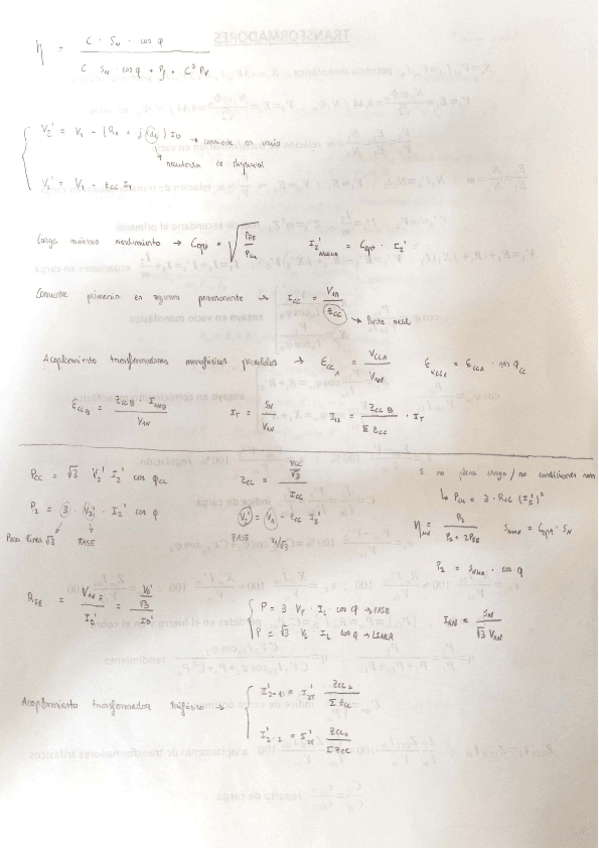 η = C · S_N · cos φ / (C · S_N · cos φ + P_f + C² P_V)
V_2' = V_1 - (R_1 + j X_d1) I_0 → corriente en vacío
reactancia de dispersión
V_2' = V_1 - Z_CC I_1
Carga máximo rendimiento → C_opt = √(P_FE / P_CU)    I_2'ηmax = C_opt · I_2'
Corriente primario en régimen permanente → I_CC = V_1N / Z_CC → Parte real
Acoplamiento transformadores monofásicos paralelos → E_CC_A = V_CCA / V_1N    E_XCCA = E_CCA · sen φ_CC
E_CCB = Z_CCB · I_1NB / V_1N    I_T = S_N / V_1N    I_1A = Z_CCB / Σ Z_CC · I_T
P_CC = √3 V_2' I_2' cos φ_CC    Z_CC = (V_CC / √3) / I_CC    S no plena carga / no condiciones nom
↳ P_CU = 3 · R_CC (I_2')²
P_2 = 3 · V_2' · I_2' · cos φ    V_2' = V_1 - Z_CC I_2'    η_MAX = P_2 / (P_2 + 2P_FE)    S_ηMAX = C_opt · S_N
Para línea √3    FASE    FASE    V_1/√3
P_2 = S_ηMAX · cos φ
R_FE = V_1N F / I_0' = (V_0' / √3) / I_0'
P = 3 V_F · I_L · cos φ → FASE    I_1N = S_N / (√3 V_1N)
P = √3 · V_L I_L cos φ → LINEA
Acoplamiento transformador trifásico → I_2'-1 = I_2T' Z_CC2 / Σ Z_CC
I_2'-2 = I_2T' Z_CC1 / Σ Z_CC